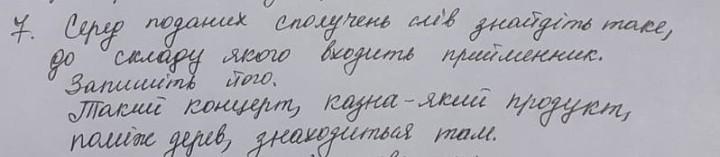 7. Серед поданих сполучень слів знайдіть таке,
до складу якого входить прийменник.
Запишіть його.
Такий концерт, казна-який продукт,
поміж дерев, знаходиться там.